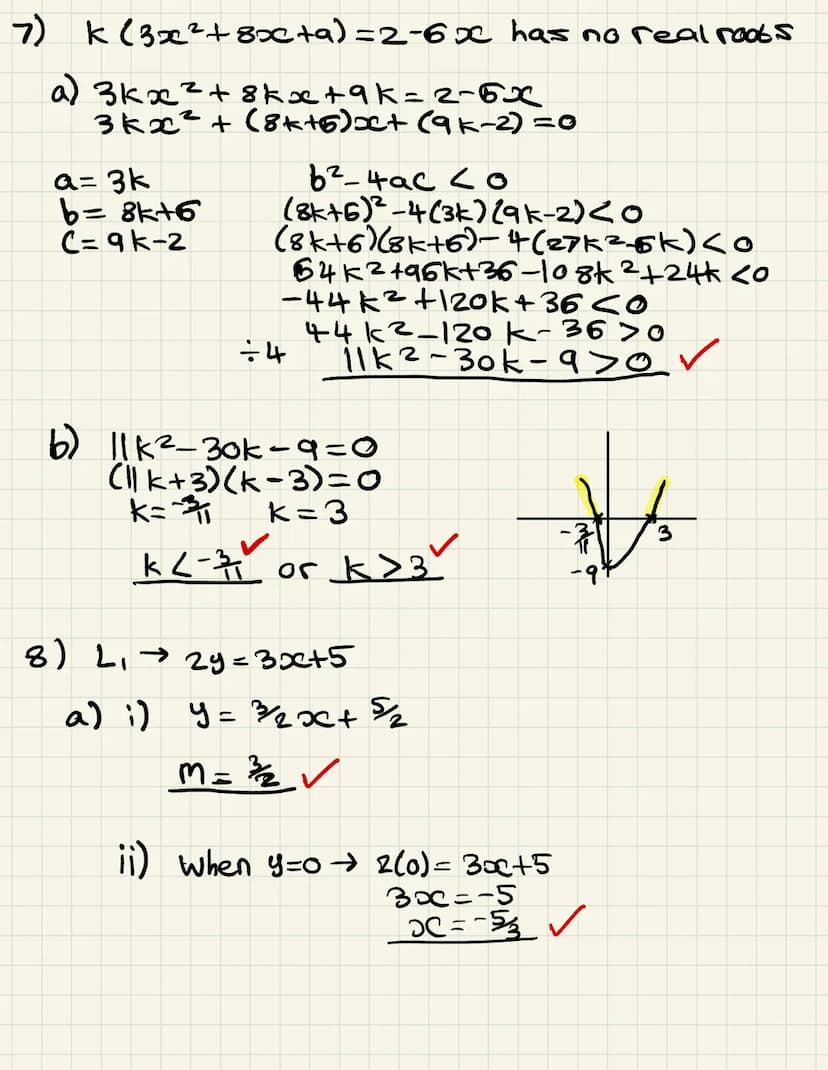 7) k(3x²+8x+9)=2-6x has no real roots
a) 3kx²+8kx+9k=2-6x
3kx²+(8k+6)x+(9k-2)=0
a=3k b²-4ac<0
b=8k+6 (8k+6)²-4(3k)(9k-2)<0
c=9k-2 (8k+6)(8k+6)-4(27k²-6k)<0
64k²+96k+36-108k²+24k<0
-44k²+120k+36<0
44k²-120k-36>0
÷4 11k²-30k-9>0 ✓
b) 11k²-30k-9=0
(11k+3)(k-3)=0
k=-3/11 k=3
k<-3/11 ✓ or k>3 ✓
-3/11 3
-9
8) L₁→ 2y=3x+5
a) i) y=3/2x+5/2
m=3/2 ✓
ii) when y=0→ 2(0)=3x+5
3x=-5
x=-5/3 ✓